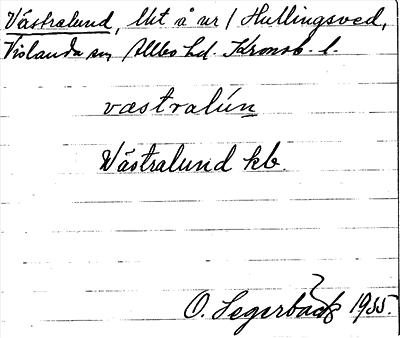 Västralund, lht å nr 1 Hullingsved,
Vislanda sn Allbo hd. Kronob. l.
væstralún
Västralund kb.
O. Segerbäck 1955.